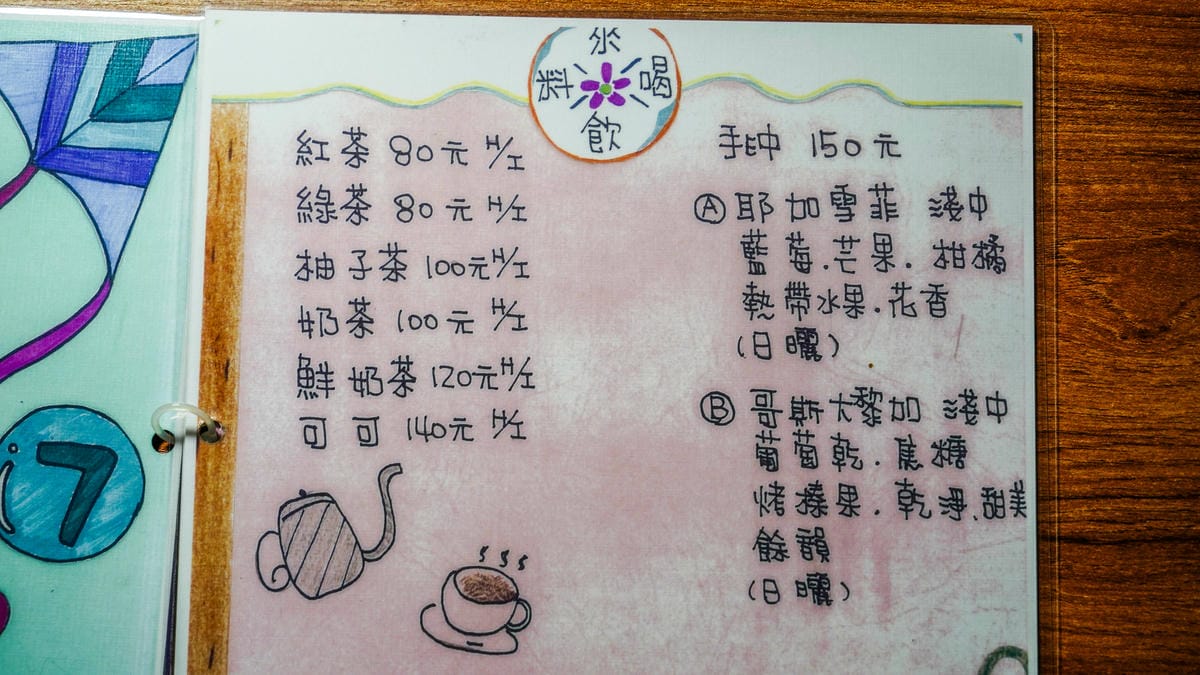 來喝飲料
紅茶 80元 H/I
綠茶 80元 H/I
柚子茶 100元 H/I
奶茶 100元 H/I
鮮奶茶 120元 H/I
可可 140元 H/I
手沖 150元
Ⓐ 耶加雪菲 淺中
藍莓.芒果.柑橘
熱帶水果.花香
(日曬)
Ⓑ 哥斯大黎加 淺中
葡萄乾.焦糖
烤榛果.乾淨、甜美
餘韻
(日曬)
7